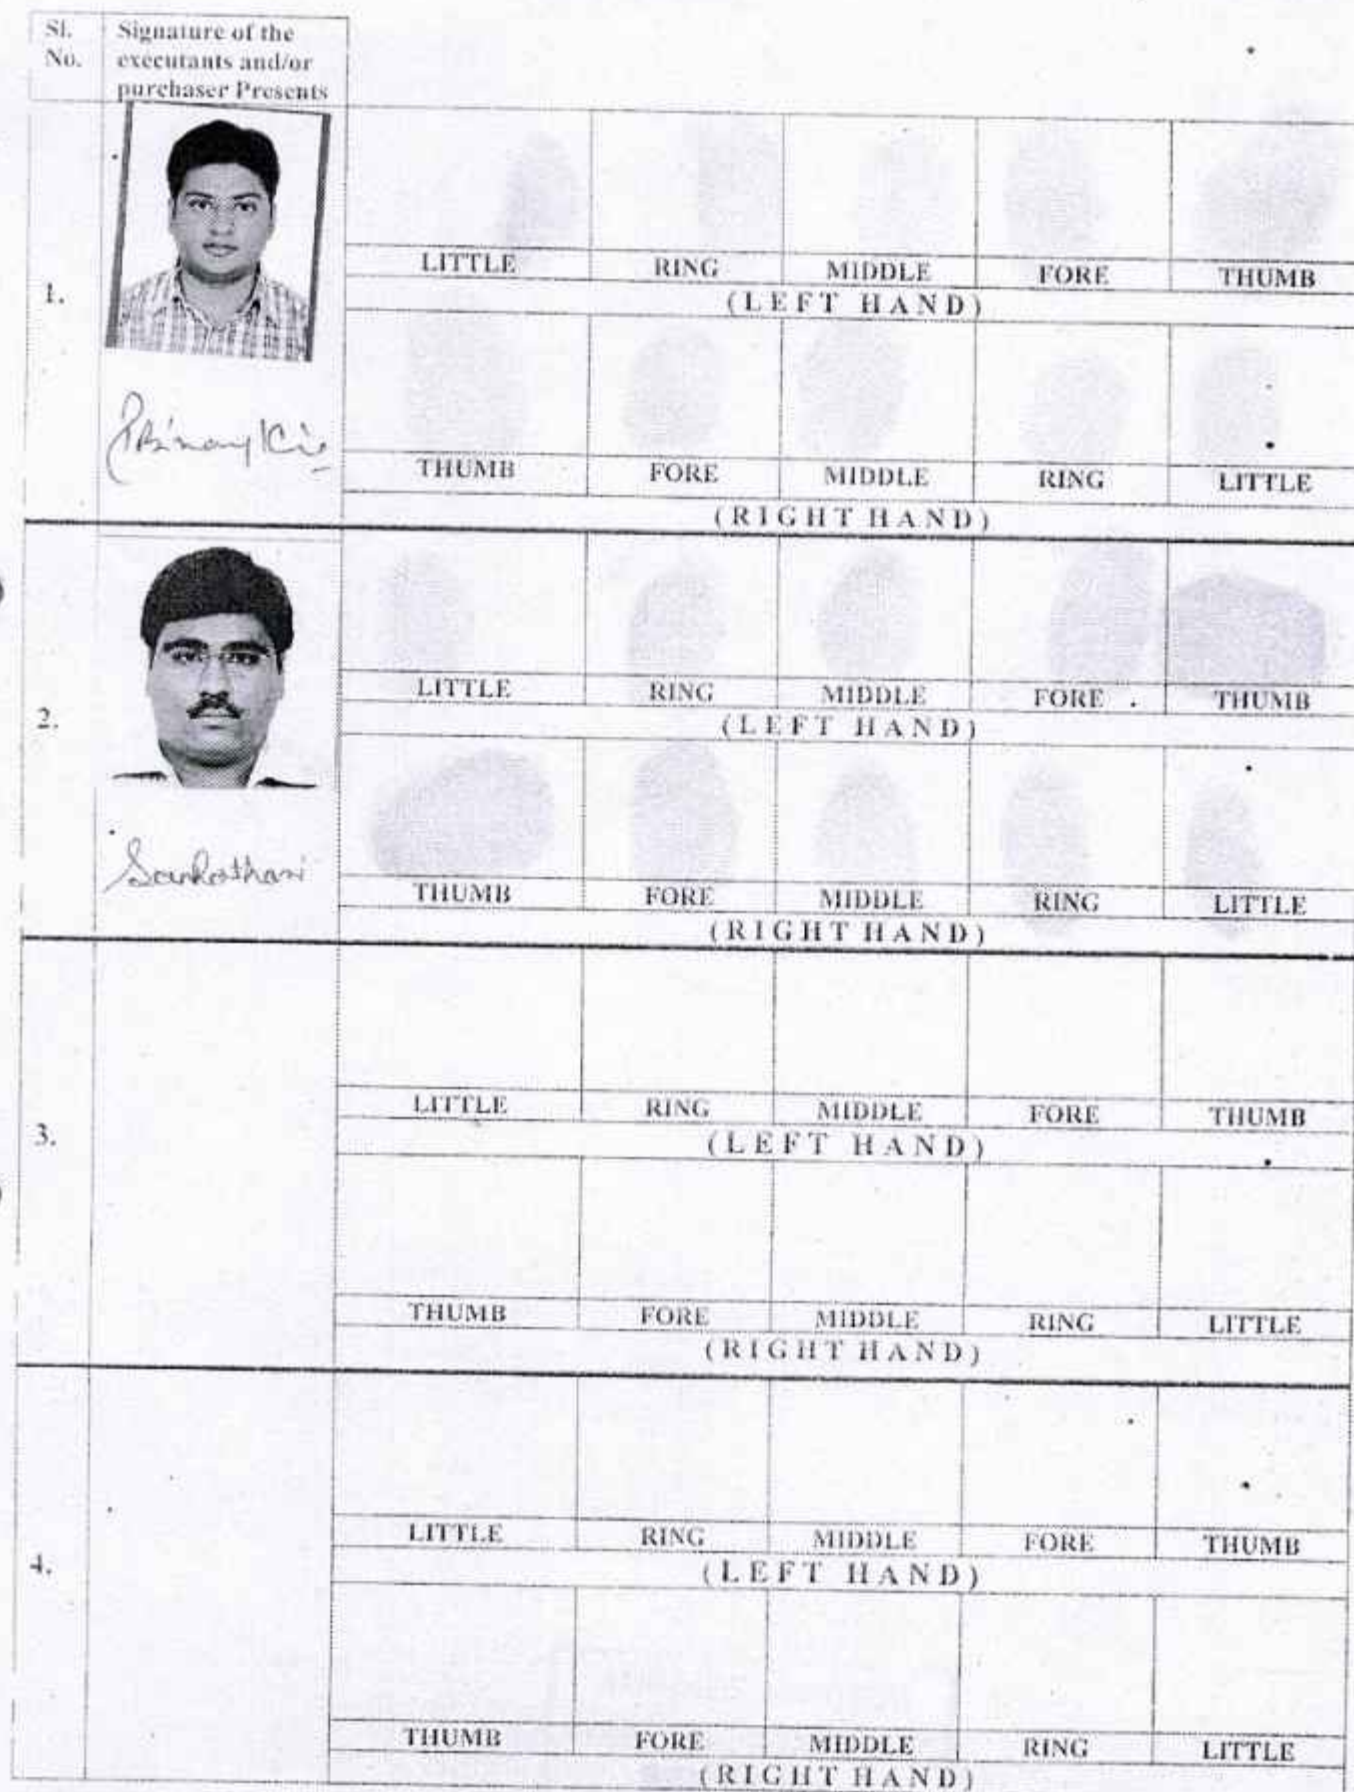 Sl. Signature of the
No. executants and/or
purchaser Presents
LITTLE RING MIDDLE FORE THUMB
(LEFT HAND)
1.
THUMB FORE MIDDLE RING LITTLE
(RIGHT HAND)
LITTLE RING MIDDLE FORE THUMB
2.
(LEFT HAND)
THUMB FORE MIDDLE RING LITTLE
(RIGHT HAND)
LITTLE RING MIDDLE FORE THUMB
3.
(LEFT HAND)
THUMB FORE MIDDLE RING LITTLE
(RIGHT HAND)
LITTLE RING MIDDLE FORE THUMB
4.
(LEFT HAND)
THUMB FORE MIDDLE RING LITTLE
(RIGHT HAND)